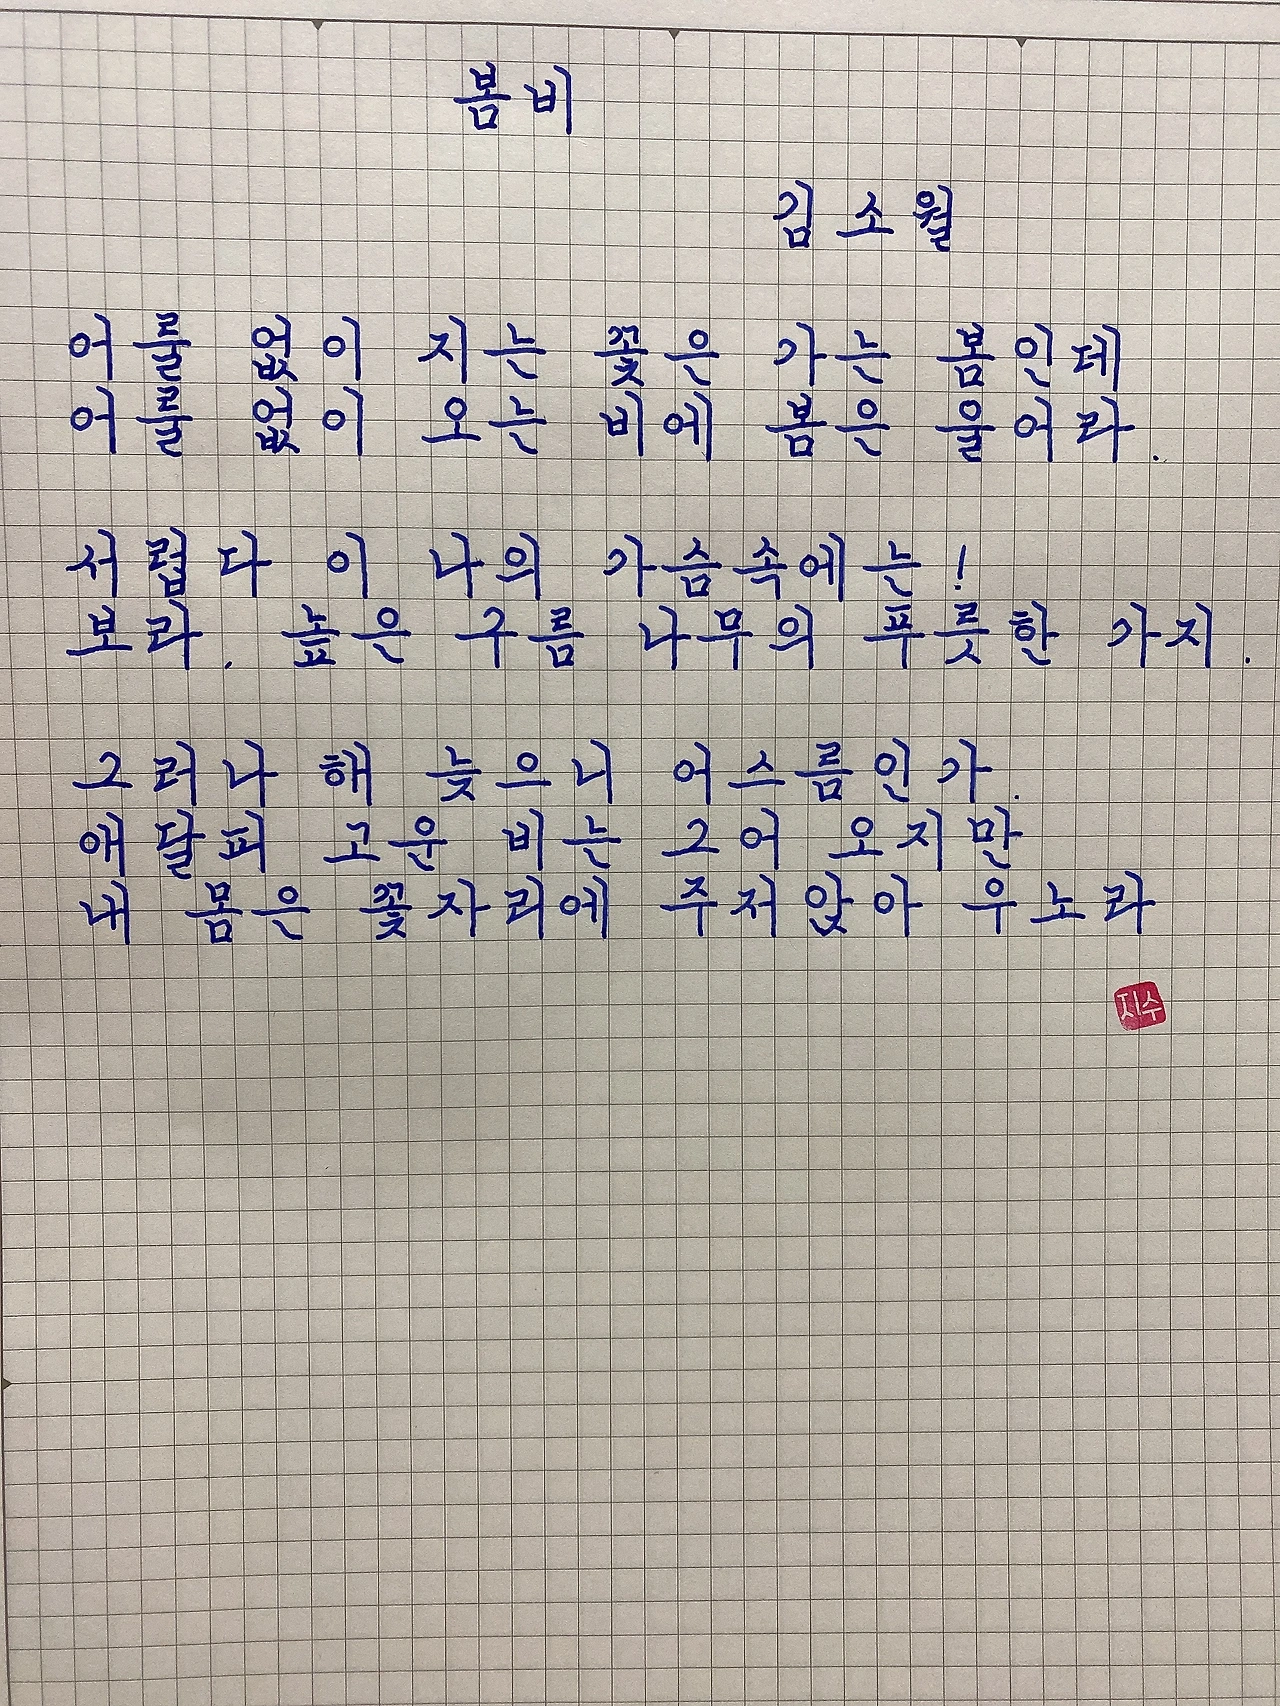 봄비
김소월
어룰 없이 지는 꽃은 가는 봄인데
어룰 없이 오는 비에 봄은 울어라.
서럽다 이 나의 가슴속에는!
보라. 높은 구름 나무의 푸릇한 가지.
그러나 해 늦으니 어스름인가.
애달피 고운 비는 그어 오지만
내 몸은 꽃자리에 주저앉아 우노라
지수